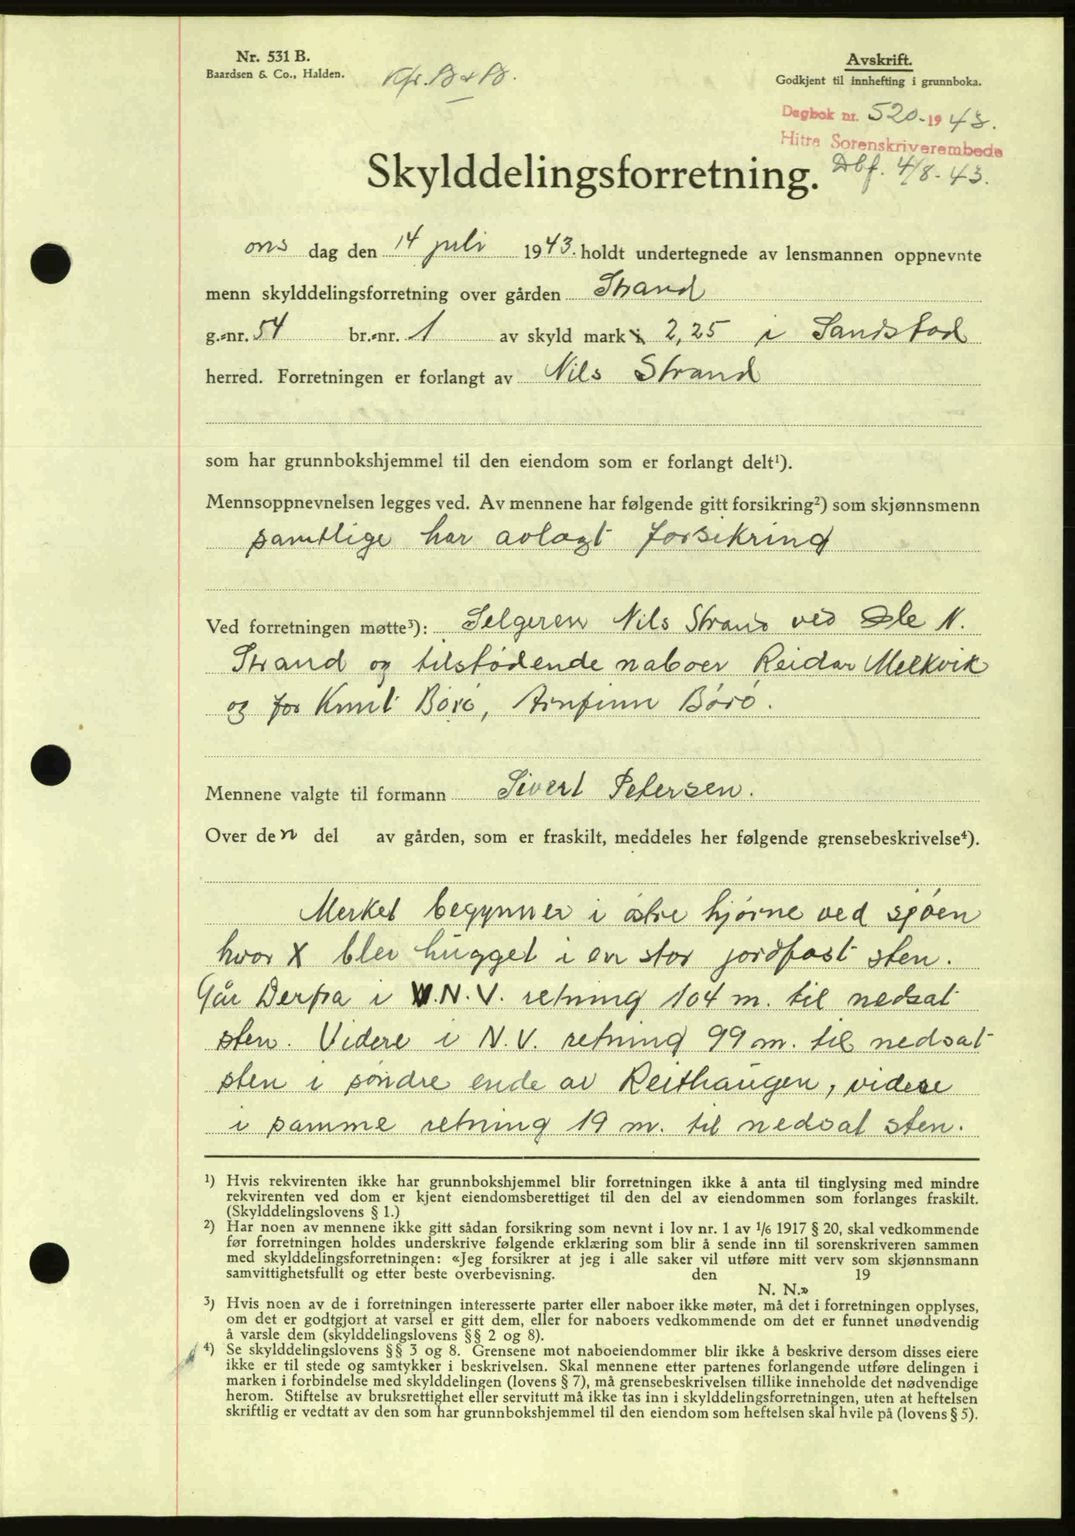 Nr. 531 B.
Baardsen & Co., Halden.
Kfr. B & B.
Avskrift.
Godkjent til innhefting i grunnboka.
Dagbok nr. 520 - 1943.
Hitra Sorenskriverembede
Dbf. 4/8-43.
Skylddelingsforretning.
ons dag den 14 juli 1943. holdt undertegnede av lensmannen oppnevnte
menn skylddelingsforretning over gården Strand
g.-nr. 54 br.-nr. 1 av skyld mark 2,25 i Sandstad
herred. Forretningen er forlangt av Nils Strand
som har grunnbokshjemmel til den eiendom som er forlangt delt¹).
Mennsoppnevnelsen legges ved. Av mennene har følgende gitt forsikring²) som skjønnsmenn
samtlige har avlagt forsikring
Ved forretningen møtte³): Selgeren Nils Strand ved Ole N.
Strand og tilstødende naboer Reidar Melkvik
og for Knut Børø, Arnfinn Børø.
Mennene valgte til formann Sivert Petersen.
Over den del av gården, som er fraskilt, meddeles her følgende grensebeskrivelse⁴).
Merket begynner i østre hjørne ved sjøen
hvor X blev hugget i en stor jordfast sten.
Går derfra i V.N.V. retning 104 m. til nedsat
sten. Videre i N.V. retning 99 m. til nedsat
sten i søndre ende av Reithaugen, videre
i samme retning 19 m. til nedsat sten.
¹) Hvis rekvirenten ikke har grunnbokshjemmel blir forretningen ikke å anta til tinglysing med mindre
rekvirenten ved dom er kjent eiendomsberettiget til den del av eiendommen som forlanges fraskilt.
(Skylddelingslovens § 1.)
²) Har noen av mennene ikke gitt sådan forsikring som nevnt i lov nr. 1 av 1/6 1917 § 20, skal vedkommende
før forretningen holdes underskrive følgende erklæring som blir å sende inn til sorenskriveren sammen
med skylddelingsforretningen: «Jeg forsikrer at jeg i alle saker vil utføre mitt verv som skjønnsmann
samvittighetsfullt og etter beste overbevisning. den 19
N. N.»
³) Hvis noen av de i forretningen interesserte parter eller naboer ikke møter, må det i forretningen opplyses,
om det er godtgjort at varsel er gitt dem, eller for naboers vedkommende om det er funnet unødvendig
å varsle dem (skylddelingslovens §§ 2 og 8).
⁴) Se skylddelingslovens §§ 3 og 8. Grensene mot naboeiendommer blir ikke å beskrive dersom disses eiere
ikke er til stede og samtykker i beskrivelsen. Skal mennene etter partenes forlangende utføre delingen i
marken i forbindelse med skylddelingen (lovens § 7), må grensebeskrivelsen tillike inneholde det nødvendige
herom. Stiftelse av bruksrettighet eller servitutt må ikke tas inn i skylddelingsforretningen, uten at heftelsen
skriftlig er vedtatt av den som har grunnbokshjemmel til den eiendom som heftelsen skal hvile på (lovens § 5).